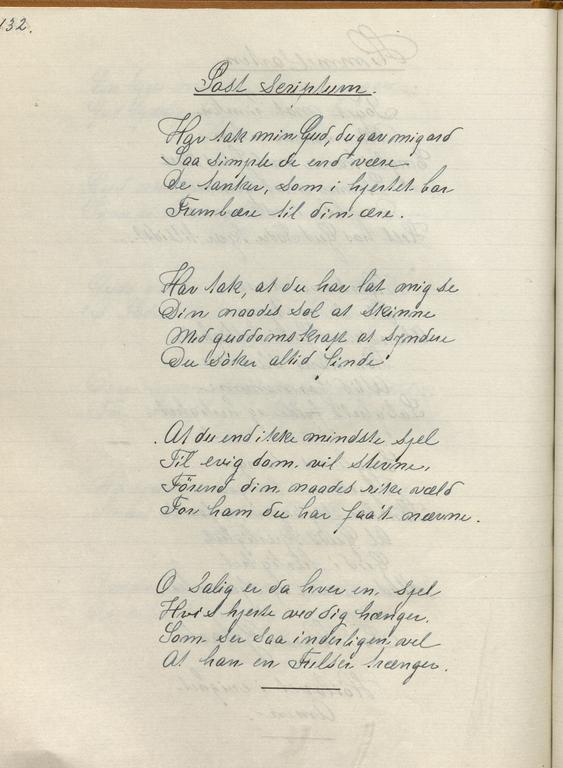 132.
Post scriptum.
Har tak min Gud, du gav mig ord
Saa simple de end være
De tanker, som i hjertet bor
Frembære til din ære.
Har tak, at du har lat mig se
Din naades sol at skinne
Med guddomskraft at syndere
Du söker altid finde
At du end ikke mindste sjel
Til evig dom vil stevne,
Förend din naades rike væld
For ham du har faa't nævne.
O salig er da hver en sjel
Hvis hjerte ved dig hænger.
Som ser saa inderligen vel
At han en Frelser trænger.